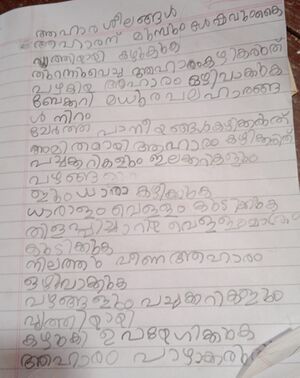 ആഹാര ശീലങ്ങൾ
ആഹാരന് മുമ്പും ശേഷവും കൈ
വൃത്തിയായി കഴുകുക
തുറന്നുവെച്ച ആഹാരം കഴിക്കരുത്
പഴകിയ ആഹാരം ഒഴിവാക്കുക
ബേക്കറി മധുരപലഹാരങ്ങ
ൾ നിറം
ചേർത്ത പാനീയങ്ങൾ കഴിക്കരുത്
അമിതമായി ആഹാരം കഴിക്കരുത്
പച്ചക്കറികളും ഇലക്കറികളും
പഴങ്ങ
ളും ധാരാ കഴിക്കുക
ധാരാളം വെള്ളം കുടിക്കുക
തിളപ്പിച്ചാറിയ വെള്ളം
കുടിക്കുക
നിലത്തു വീണ ആഹാരം
ഒഴിവാക്കുക
പഴങ്ങളും പച്ചക്കറികളും
വൃത്തിയായി
കഴുകി ഉപയോഗിക്കുക
ആഹാരം പാഴാക്കരു